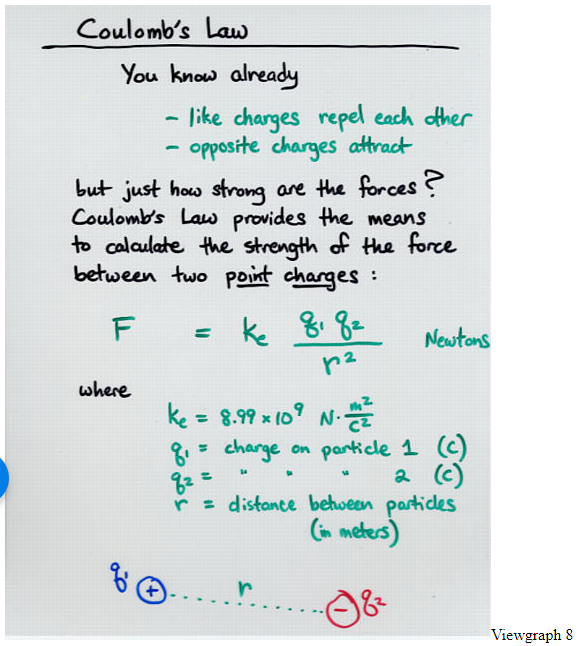 Coulomb's Law
You know already
- like charges repel each other
- opposite charges attract
but just how strong are the forces?
Coulomb's Law provides the means
to calculate the strength of the force
between two point charges :
F = kₑ q₁ q₂ / r² Newtons
where
kₑ = 8.99 × 10⁹ N· m²/C²
q₁ = charge on particle 1 (C)
q₂ = " " " 2 (C)
r = distance between particles
(in meters)
q₁ + r - q₂
Viewgraph 8